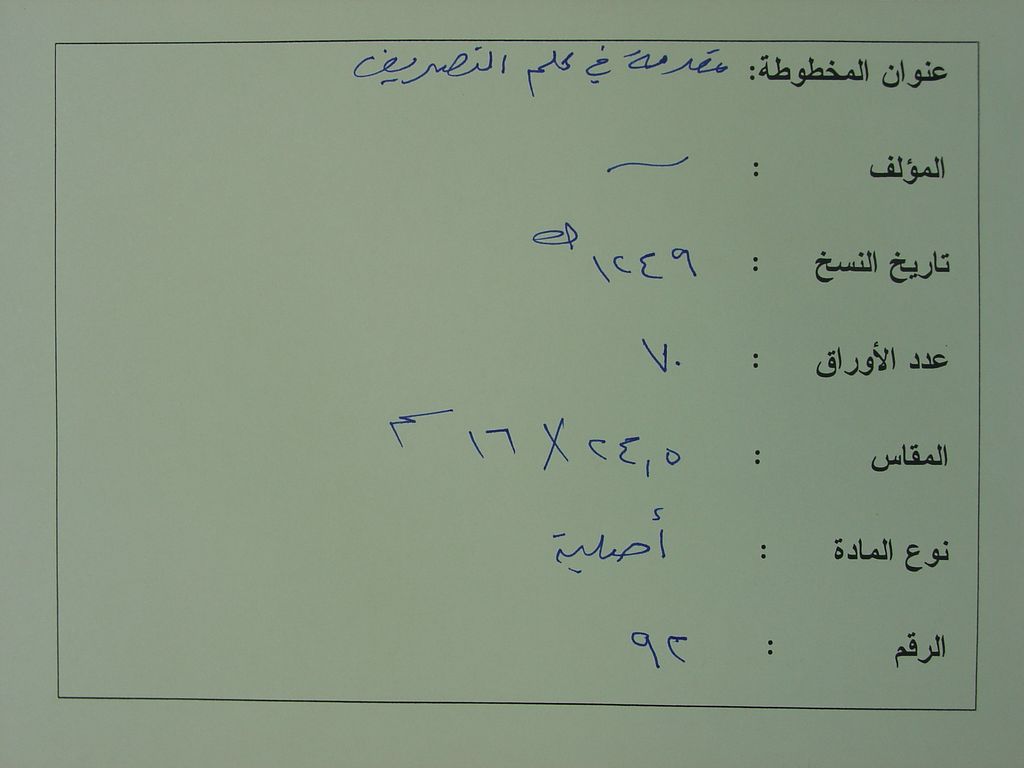 عنوان المخطوطة: مقدمة في علم التصريف
المؤلف : ـ
تاريخ النسخ : ١٢٤٩ هـ
عدد الأوراق : ٧٠
المقاس : ٢٤,٥ X ١٦ سم
نوع المادة : أصلية
الرقم : ٩٢